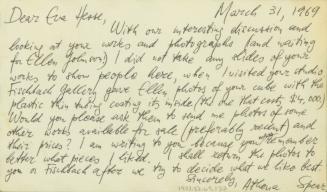 March 31, 1969
Dear Eva Hesse,
With our interesting discussion and
looking at your works and photographs (and waiting
for Ellen Johnson) I did not take any slides of your
works to show people here, when I visited your studio.
Fischbach Gallery gave Ellen photos of your cube with the
plastic thin tubing lining its inside (the one that costs $4,000)
Would you please ask them to send me photos of some
other works available for sale (preferably recent) and
their prices? I am writing to you because you remember
better what pieces I liked. I shall return the photos to
you or Fischbach after we try to decide what we like best.
Sincerely,
Athena Spear